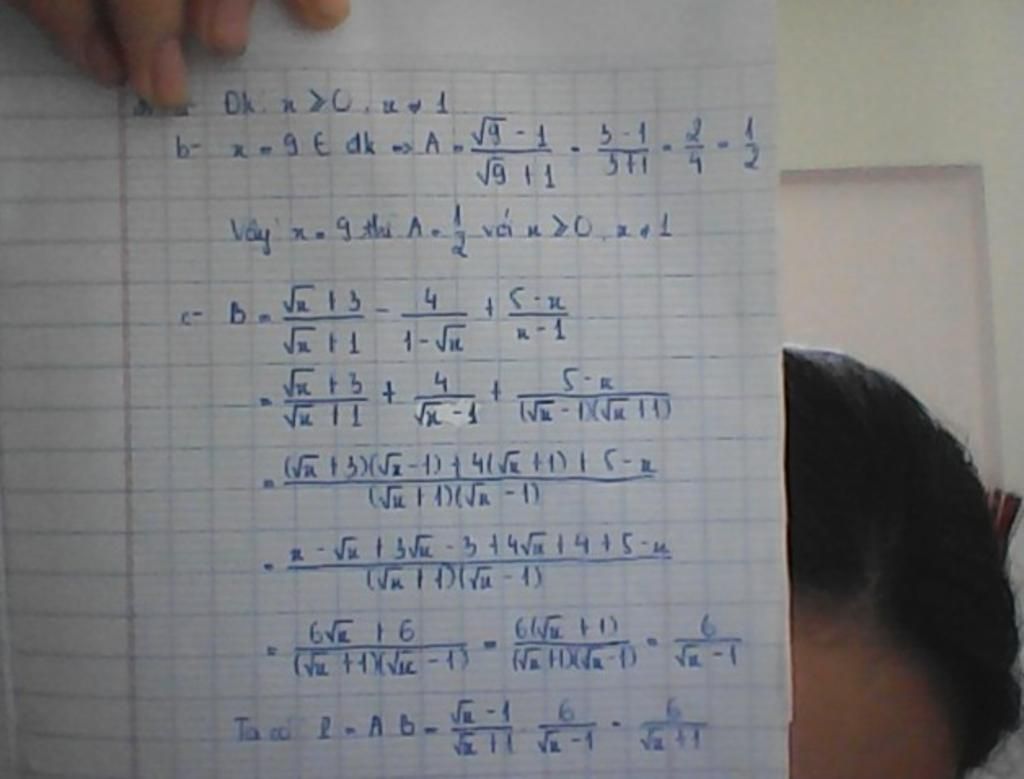 Đk: x ≥ 0, x ≠ 1
b- x = 9 ∈ đk => A = (√9 - 1)/(√9 + 1) = (3 - 1)/(3 + 1) = 2/4 = 1/2
Vậy x = 9 thì A = 1/2 với x ≥ 0, x ≠ 1
c- B = (√x + 3)/(√x + 1) - 4/(1 - √x) + (5 - x)/(x - 1)
= (√x + 3)/(√x + 1) + 4/(√x - 1) + (5 - x)/((√x - 1)(√x + 1))
= ((√x + 3)(√x - 1) + 4(√x + 1) + 5 - x)/((√x + 1)(√x - 1))
= (x - √x + 3√x - 3 + 4√x + 4 + 5 - x)/((√x + 1)(√x - 1))
= (6√x + 6)/((√x + 1)(√x - 1)) = 6(√x + 1)/((√x + 1)(√x - 1)) = 6/(√x - 1)
Ta có P = A.B = (√x - 1)/(√x + 1) . 6/(√x - 1) = 6/(√x + 1)